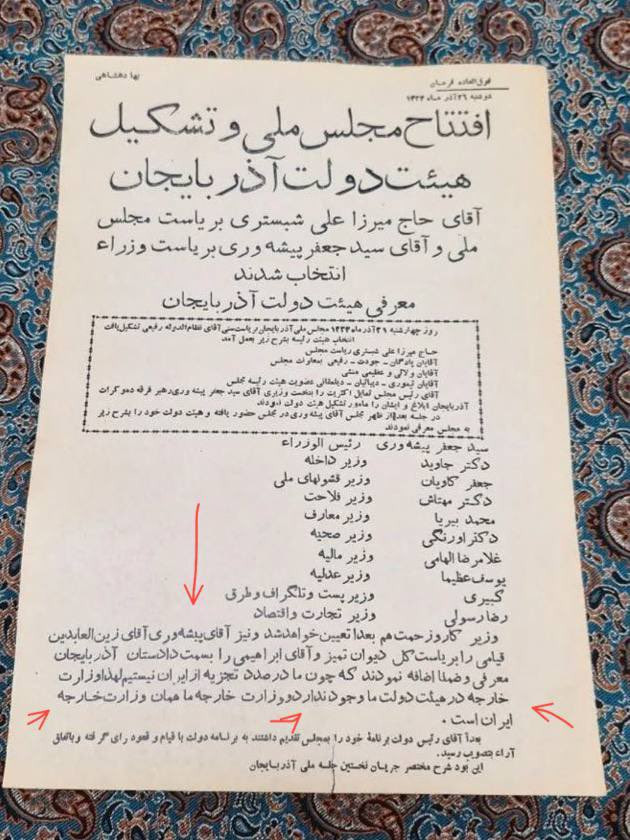 فوق‌العاده فرمان
بها دهشاهی
دوشنبه ۲۶ آذر ماه ۱۳۲۴
افتتاح مجلس ملی و تشکیل
هیئت دولت آذربایجان
آقای حاج میرزا علی شبستری بریاست مجلس
ملی و آقای سید جعفر پیشه وری بریاست وزراء
انتخاب شدند
معرفی هیئت دولت آذربایجان
روز چهارشنبه ۲۱ آذر ماه ۱۳۲۴ مجلس ملی آذربایجان بریاست سنی آقای نظام‌الدوله رفیعی تشکیل یافت
انتخاب هیئت رئیسه بشرح زیر بعمل آمد
حاج میرزا علی شبستری ریاست مجلس
آقایان پادگان - جودت - رفیعی بمعاونت مجلس
آقایان و لائی و عظیمی منشی
آقایان تیموری - دیبائیان - دیلمقانی عضویت هیئت رئیسه مجلس
آقای رئیس مجلس تمایل اکثریت را بنخست وزیری آقای سید جعفر پیشه وری رهبر فرقه دموکرات
آذربایجان ابلاغ و ایشان را مامور تشکیل هیئت دولت نمودند
در جلسه بعد از ظهر مجلس آقای پیشه وری در مجلس حضور یافته و هیئت دولت خود را بشرح زیر
به مجلس معرفی نمودند
سید جعفر پیشه وری رئیس الوزراء
دکتر جاوید وزیر داخله
جعفر کاویان وزیر قشونهای ملی
دکتر مهتاش وزیر فلاحت
محمد بیریا وزیر معارف
دکتر اورنگی وزیر صحیه
غلامرضا الهامی وزیر مالیه
یوسف عظیما وزیر عدلیه
کبیری وزیر پست و تلگراف و طرق
رضا رسولی وزیر تجارت و اقتصاد
وزیر کار و زحمت هم بعدا تعیین خواهد شد و نیز آقای پیشه وری آقای زین العابدین
قیامی را بریاست کل دیوان تمیز و آقای ابراهیمی را بسمت دادستان آذربایجان
معرفی و ضمنا اضافه نمودند که چون ما در صدد تجزیه از ایران نیستیم لهذا وزارت
خارجه در هیئت دولت ما وجود ندارد و وزارت خارجه ما همان وزارت خارجه
ایران است .
بعداً آقای رئیس دولت برنامهٔ خود را بمجلس تقدیم داشتند به برنامه دولت با قیام و قعود رای گرفته و باتفاق
آراء بتصویب رسید.
این بود شرح مختصر جریان نخستین جلسه ملی آذربایجان